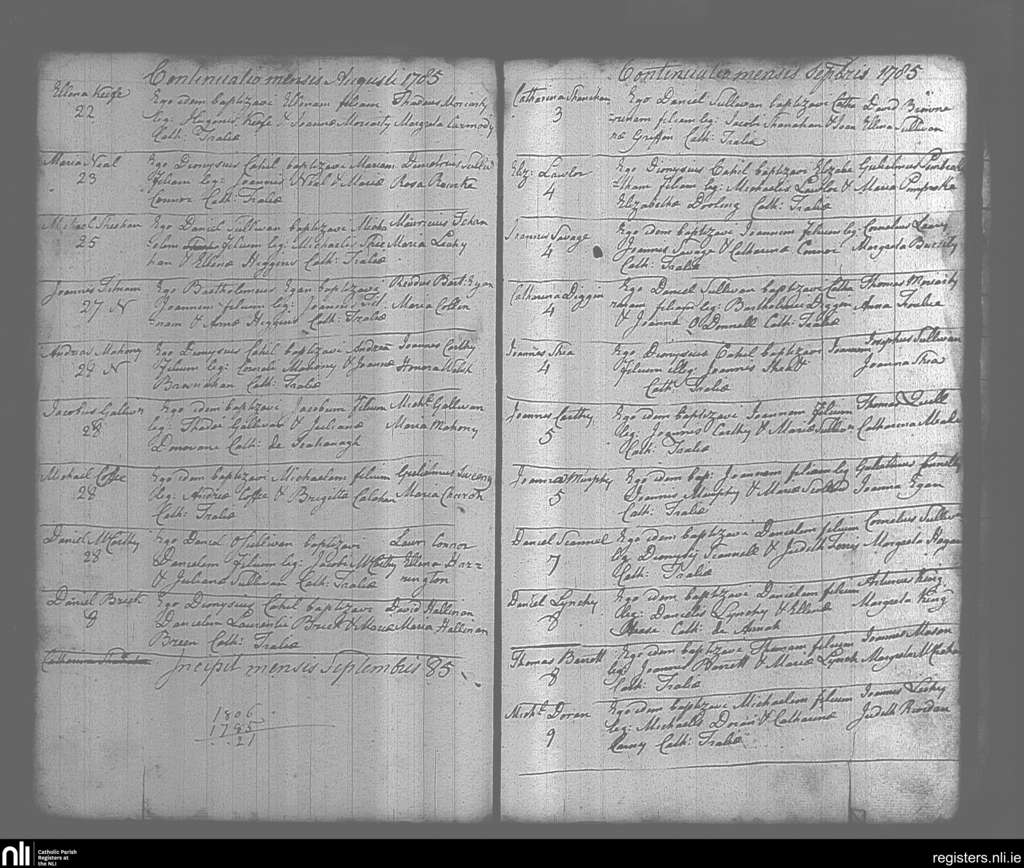 Continuatio mensis Augusti 1785
Ellena Keefe Ego idem baptizavi Ellenam filiam Thadeus Moriarty
22 leg: Eugenii Keefe & Joannæ Moriarty Margreta Carmody
Cath: Traliæ
Maria Neal Ego Dionysius Cahil baptizavi Mariam Demetrius
23 filiam leg: Joannis Neal & Mariæ Rosa Rourke
Connor Cath: Traliæ
Michael Sheehan Ego Daniel Sullivan baptizavi Micha Mauricius
25 elem filium leg: Michaelis Shee Maria Leahy
han & Ellenæ Higgins Cath: Traliæ
Joannes Fitnam Ego Bartholomeus Egan baptizavi Bart: Egan
27 N Joannem filium leg: Joannis Fit
nam & Annæ Higgins Cath: Traliæ
Andreas Mahony Ego Dionysius Cahil baptizavi Andrea Joannes Carthy
29 N filium leg: Mahony & Joannæ Honora Walsh
Brawnahan Cath: Traliæ
Jacobus Gallivan Ego idem baptizavi Jacobum filium Michl: Gallivan
28 leg: Thadei Gallivan & Julianæ Maria Mahony
Donovane Cath: de
Michael Coffee Ego idem baptizavi Michaelem filium Gulielmus
28 leg: Andreæ Coffee & Brigettæ Calahan Maria
Cath: Traliæ
Daniel McCarthy Ego Daniel OSullivan baptizavi Laur: Connor
28 Danielem filium leg: Jacobi McCarthy Ellena Har=
& Julianæ Sullivan Cath: Traliæ rington
Daniel Brick Ego Dionysius Cahil baptizavi David Hallinan
Danielem Laurentii Brick & Mariæ Maria Hallinan
Breen Cath: Traliæ
Incipit mensis Septembris 85
1806
1785
21
Continuatio mensis Septbris 1785
Catharina Shanahan Ego Daniel Sullivan baptizavi Catha David Browne
3 rinam filiam leg: Jacobi Shanahan & Joan Ellena Sullivan
næ Griffin Cath: Traliæ
Eliz: Lawlor Ego Dionysius Cahil baptizavi Elizabe Gulielmus
4 tham filiam leg: Michaelis Lawlor & Maria
Elizabethæ Dooling Cath: Traliæ
Joannes Savage Ego idem baptizavi Joannem filium leg: Cornelius Leary
4 Joannis Savage & Catharinæ Connor Margreta Buckley
Cath: Traliæ
Catharina Diggin Ego Daniel Sullivan baptizavi Catha Thomas Moriarty
4 rinam filiam leg: Bartholomei Diggin Anna
& Joannæ O Donnell Cath: Traliæ
Joannes Shea Ego Dionysius Cahil baptizavi Joannem Josephus Sullivan
4 filium illeg: Joannis Joanna Shea
Cath: Traliæ
Joannes Carthy Ego idem baptizavi Joannem filium Thomas
5 leg: Joannis Carthy & Mariæ Sullivan Catharina Meade
Cath: Traliæ
Joanna Murphy Ego idem bap: Joannam filiam leg: Gulielmus
5 Joannis Murphy & Mariæ Joanna Egan
Cath: Traliæ
Daniel Scannel Ego idem baptizavi Danielem filium Cornelius Sullivan
7 leg: Dionysii Scannell & Judith Ferris Margreta Hogan
Cath: Traliæ
Daniel Lynchy Ego idem baptizavi Danielem filium Arturus King
8 leg: Danielis Lynchy & Ellenæ Margreta King
Cath: de Annah
Thomas Barrett Ego idem baptizavi Thomam filium Joannes Mason
8 leg: Joannis Barrett & Mariæ Lynch Margreta
Cath: Traliæ
Michl: Doran Ego idem baptizavi Michaelem filium Joannes Leahy
9 leg: Michaelis Doran & Catharinæ Judith Riordan
Cath: Traliæ
nli Catholic Parish
Registers at
the NLI
registers.nli.ie